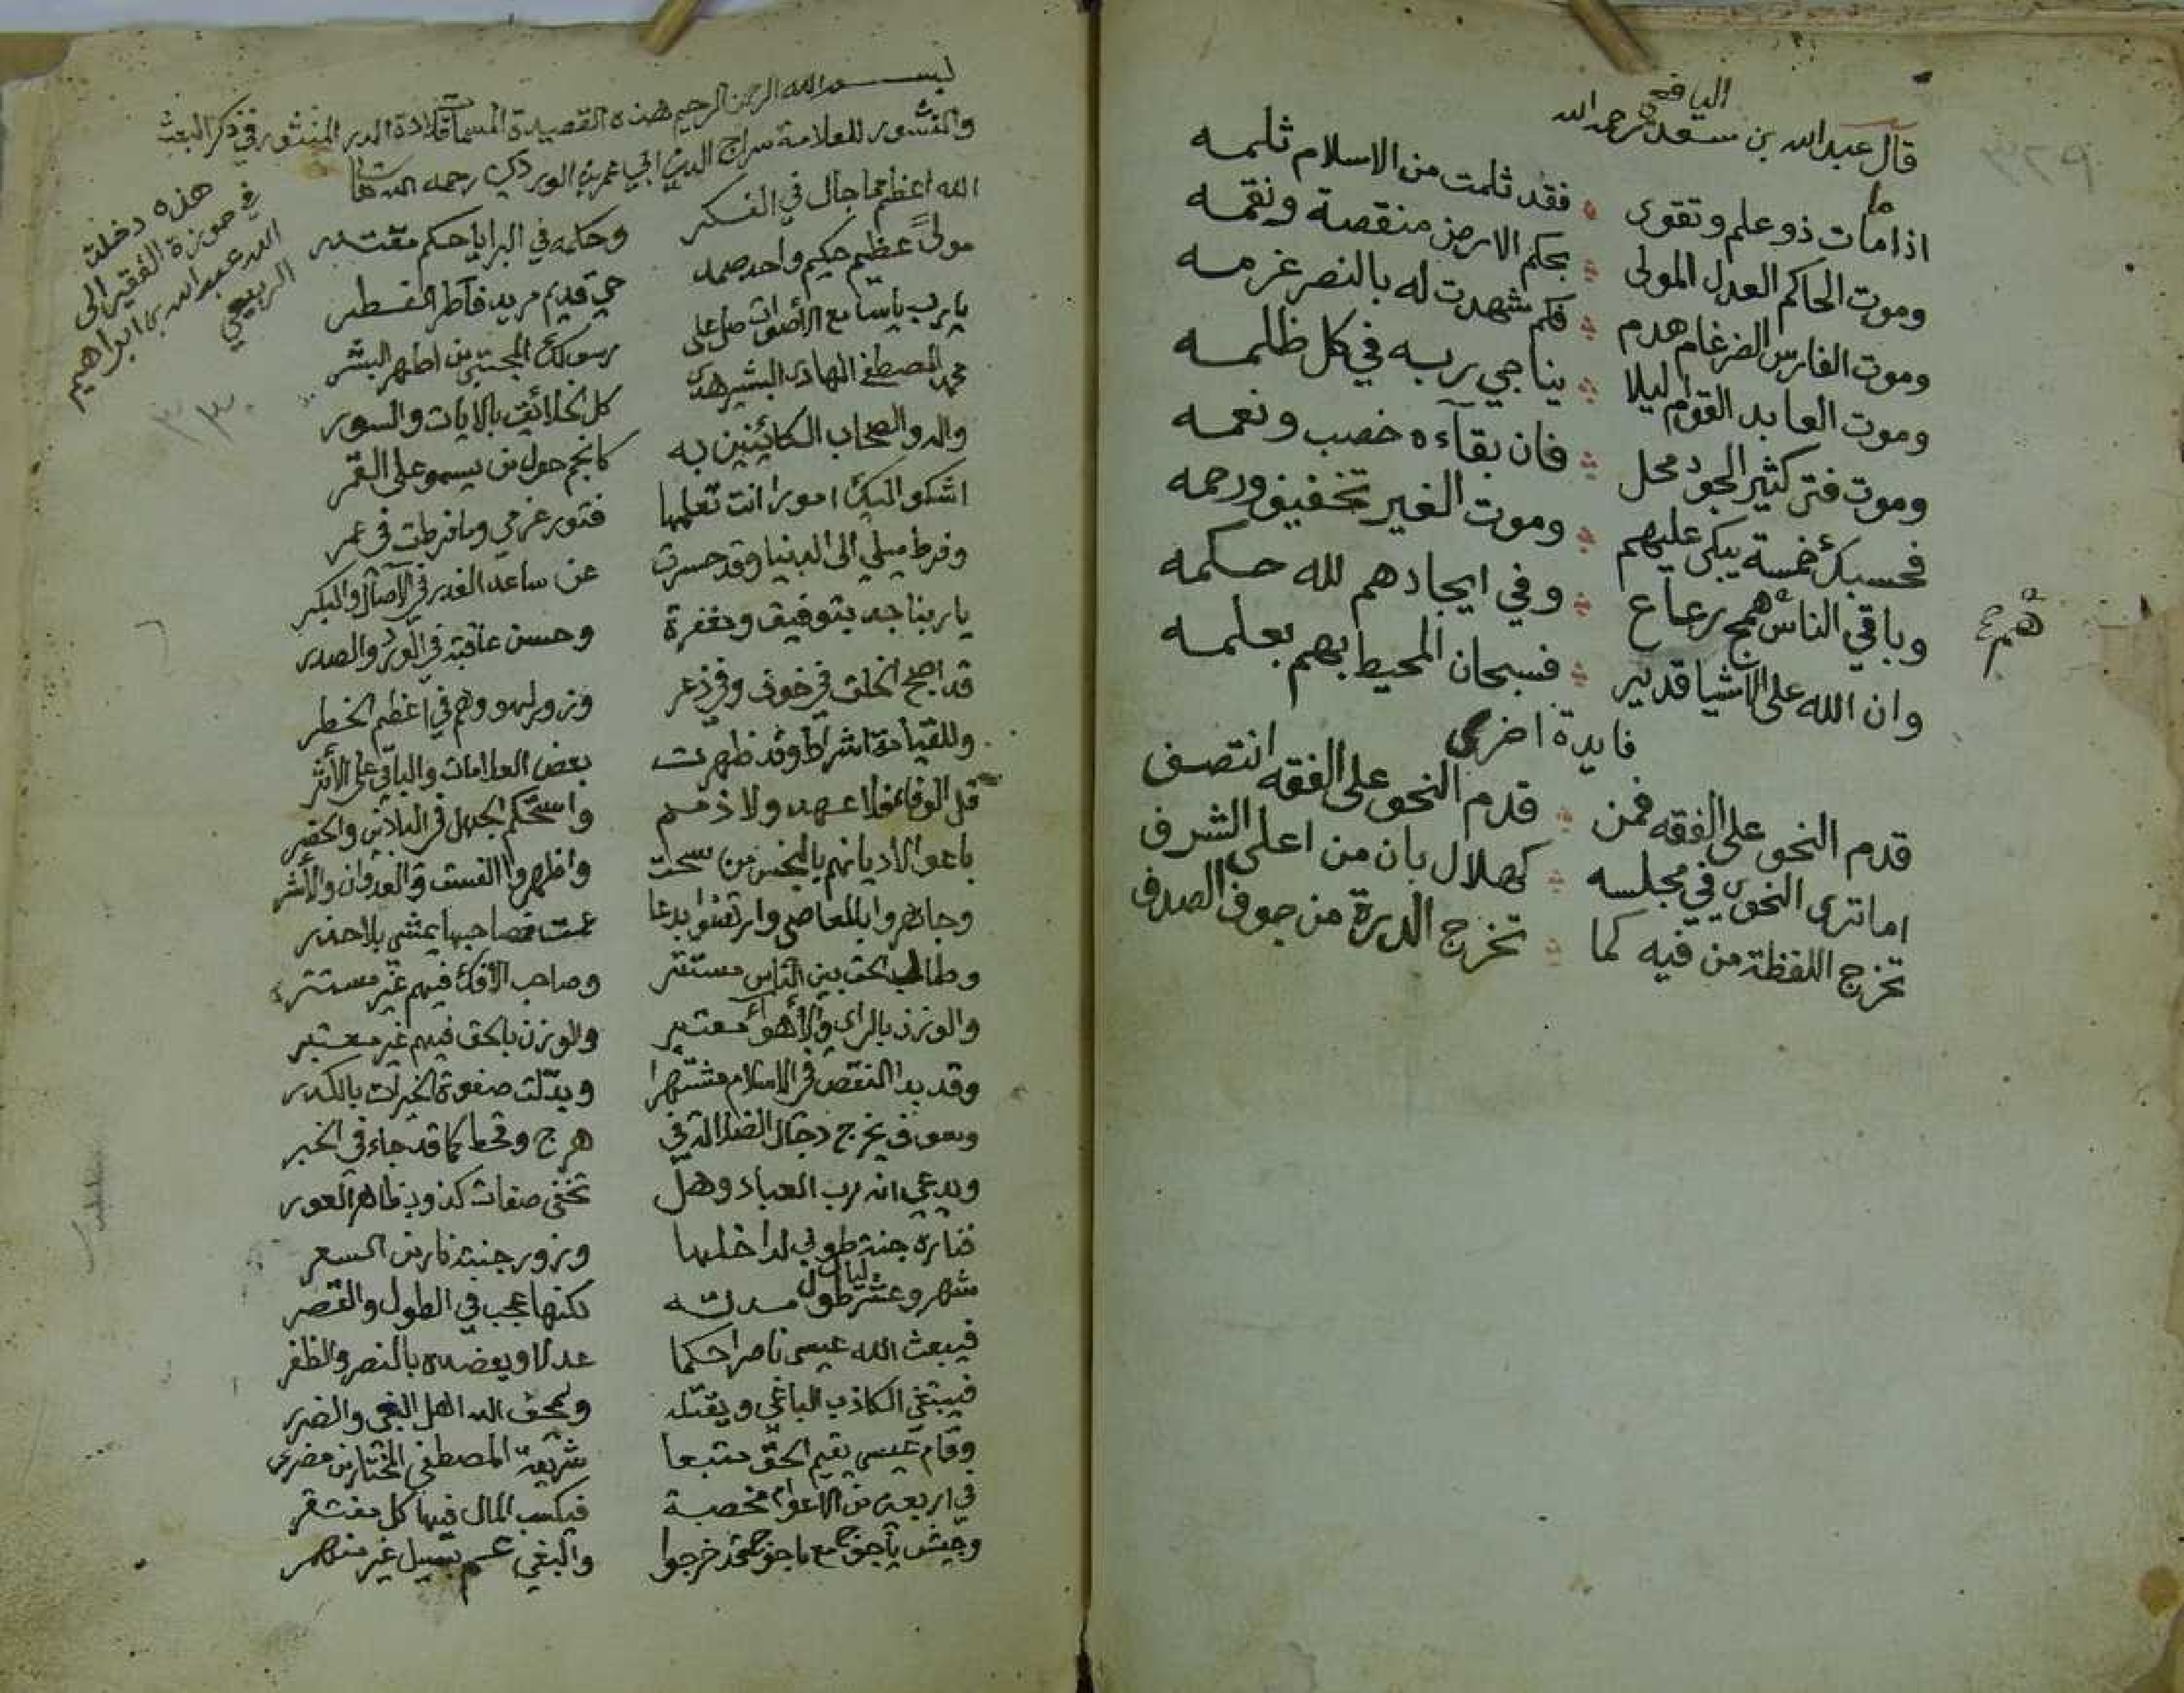 قال عبدالله بن سعد اليافعي رحمه الله
اذا ما مات ذو علم وتقوى فقد ثلمت من الاسلام ثلمه
وموت الحاكم العدل المولى بحكم الارض منقصة ونقمه
وموت الفارس الضرغام هدم فكم شهدت له بالنصر عزمه
وموت العابد القوام ليلا يناجي ربه في كل ظلمه
وموت فتى كثير الجود محل فان بقآءه خصب ونعمه
فحسبك خمسة يبكى عليهم وموت الغير تخفيف ورحمه
وباقي الناس همج رعاع وفي ايجادهم لله حكمه
وان الله على الاشيا قدير فسبحان المحيط بهم بعلمه
فايدة اخرى
قدم النحو على الفقه فمن قدم النحو على الفقه انتصف
اما ترى النحوي في مجلسه كهلال بان من اعلى الشرف
تخرج اللفظة من فيه كما تخرج الدرة من جوف الصدف
بسم الله الرحمن الرحيم هذه القصيدة المسماة قلادة الدر المنثور في ذكر البعث
والنشور للعلامة سراج الدين ابي عمر بن الوردي رحمه الله تعالى
هذه دخلت
في حوزة الفقير الى
الله عبدالله بن ابراهيم
الربيعي
الله اعظم مما جال في الفكر وحكمه في البرايا حكم مقتدر
مولىً عظيم حكيم واحد صمد حي قديم مريد فاطر الفطر
يا رب يا سامع الأصوات صل على رسولك المجتبى من اطهر البشر
محمد المصطفى الهادي البشير هدى كل الخلائق بالايات والسور
واله والصحاب الكائنين به كانجم حول من يسمو على القمر
اشكو اليك امورا انت تعلمها فتور عزمي وما فرطت في عمر
وفرط ميلي الى الدنيا وقد حسرت عن ساعد الغدر في الآصال والبكر
يا ربنا جد بتوفيق ومغفرة وحسن عاقبة في الورد والصدر
قد اصبح الخلق في خوف وفي ذعر وزور لهو وهم في اعظم الخطر
وللقيامة اشراط وقد ظهرت بعض العلامات والباقي على الأثر
قل الوفا فلا عهد ولا ذمم واستحكم الجهل في البادين والحضر
باعوا لاديانهم بالبخس من سحت واظهروا الفسق والعدوان والأشر
وجاهروا بالمعاصي وارتضوا بدعا عمت فصاحبها يمشي بلا حذر
وطالب الحق بين الناس مستتر وصاحب الأفك فيهم غير مستتر
والوزن بالراي والأهوأ معتبر والوزن بالحق فيهم غير معتبر
وقد بدا النقص في الاسلام مشتهرا وبدّلت صفوة الخيرات بالكدر
وسوف يخرج دجال الضلالة في هرج وقحط كما قد جاء في الخبر
ويدعي انه رب العباد وهل تخفى صفات كذوب ظاهر العور
فناره جنة طوبى لداخلها وزور جنته نار من السعر
شهر وعشر ليال طول مدته لكنها عجب في الطول والقصر
فيبعث الله عيسى ناصرا حكما عدلا ويعضده بالنصر والظفر
فيبتغي الكاذب الباغي ويقتله ويمحق الله اهل البغي والضرر
وقام عيسى يقيم الحق متبعا شريعة المصطفى المختار من مضر
في اربعين من الاعوام مخصبة فيكسب المال فيها كل مفتقر
وجيش يأجوج مع ماجوج قد خرجوا والبغي عم بسيل غير منهمر